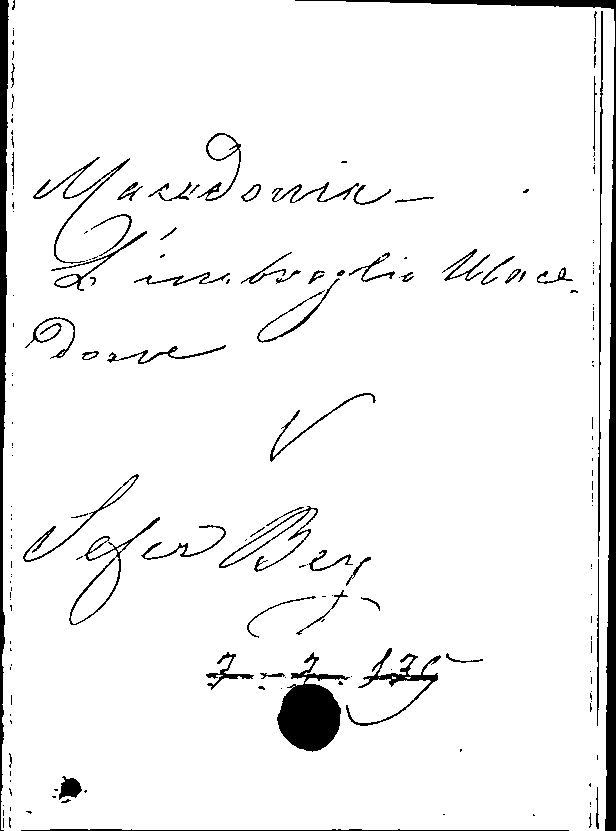 Macedonia -
L'imbroglio Mace-
done
V
Sefer Bey
7 - 7. 135